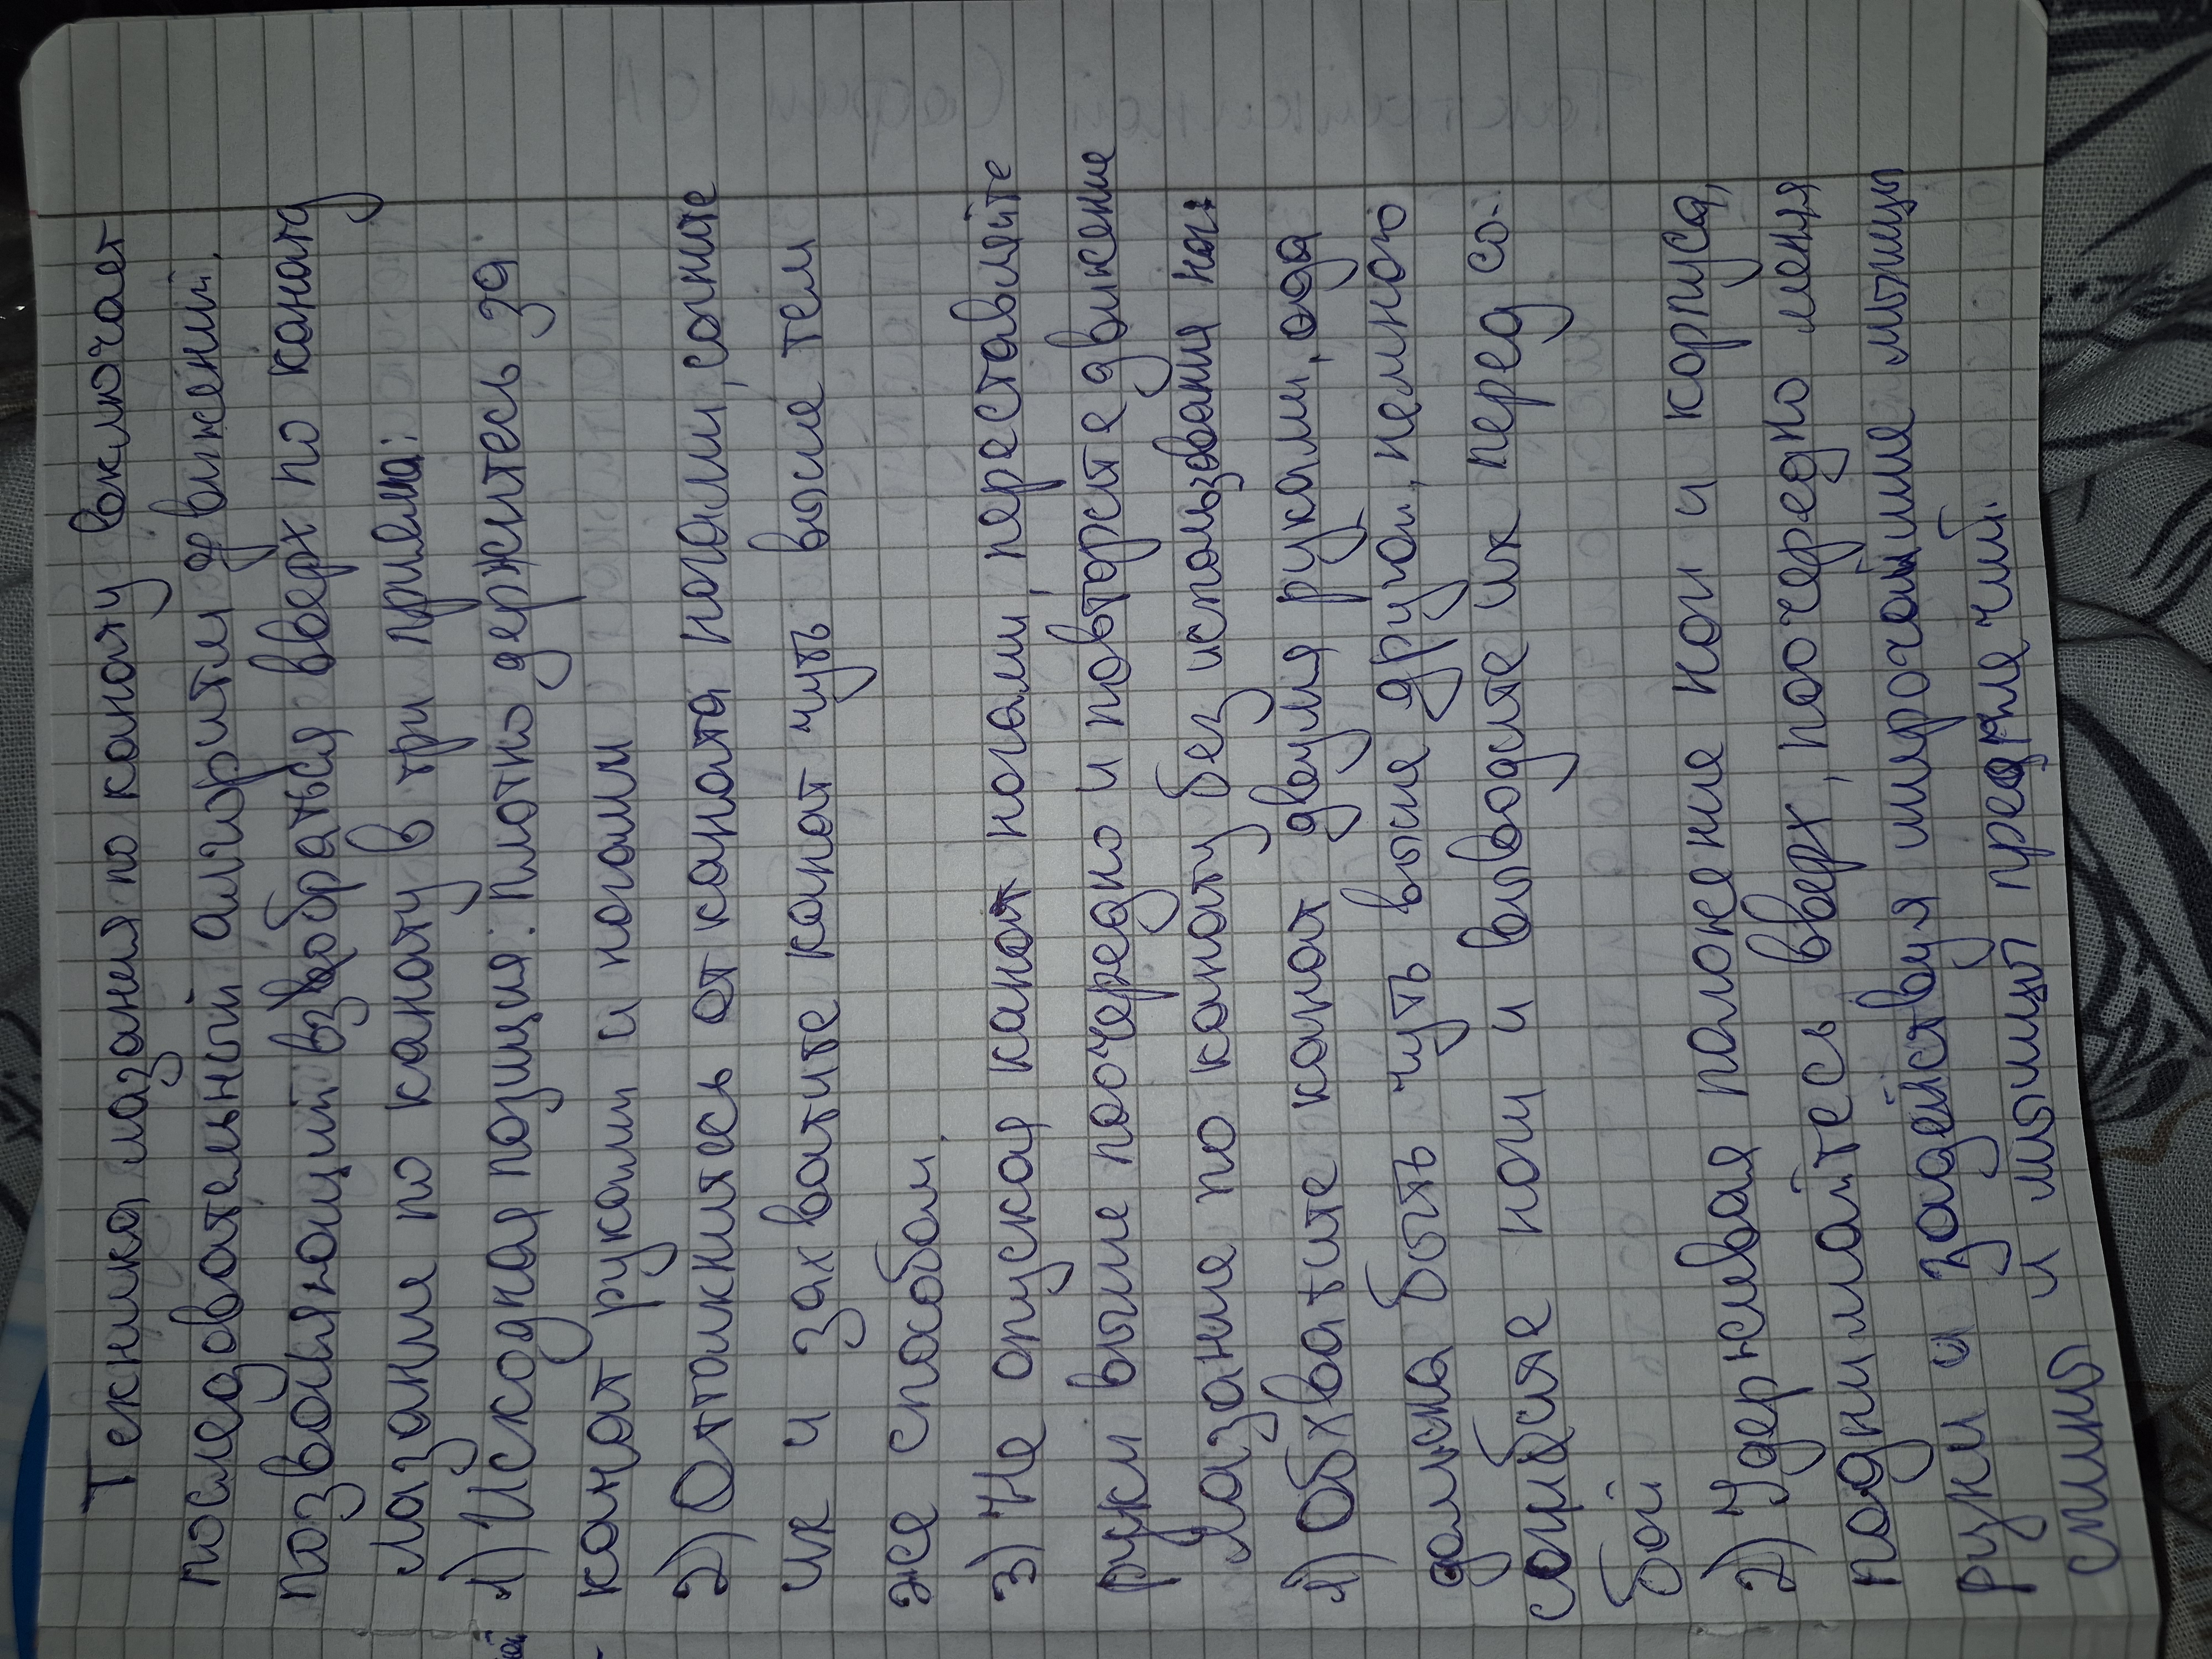 Техника лазания по канату включает
последовательный алгоритм движений,
позволяющий взобраться вверх по канату
лазание по канату в три приема:
1) Исходная позиция: плотно держитесь за
канат руками и ногами
2) Оттолкнитесь от каната ногами, согните
их и захватите канат чуть выше тем
же способом.
3) Не опуская канат ногами, переставляйте
руки выше поочередно и повторите движение
Лазание по канату без использования ног:
1) Обхватите канат двумя руками, одна
должна быть чуть выше другой, немного
согибая ноги и выводите их перед со-
бой
2) Удерживая положение ног и корпуса,
поднимайтесь вверх, поочередно меняя
руки и задействуя широчайшие мышцы
спины и мышцы предплечий.